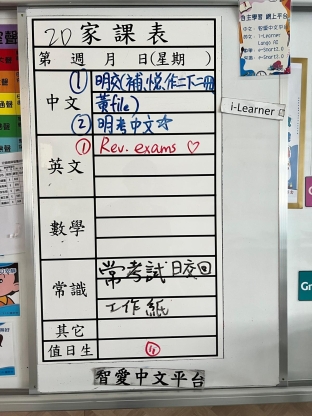 2D 家課表
第 週 月 日(星期 )
中文
① 明交(補,悅作二下二冊
黃file)
② 明考中文
英文
① Rev. exams ♡
數學
常識
常考試日交回
工作紙
其它
值日生
⑪
智愛中文平台
i-Learner
自主學習 網上平台